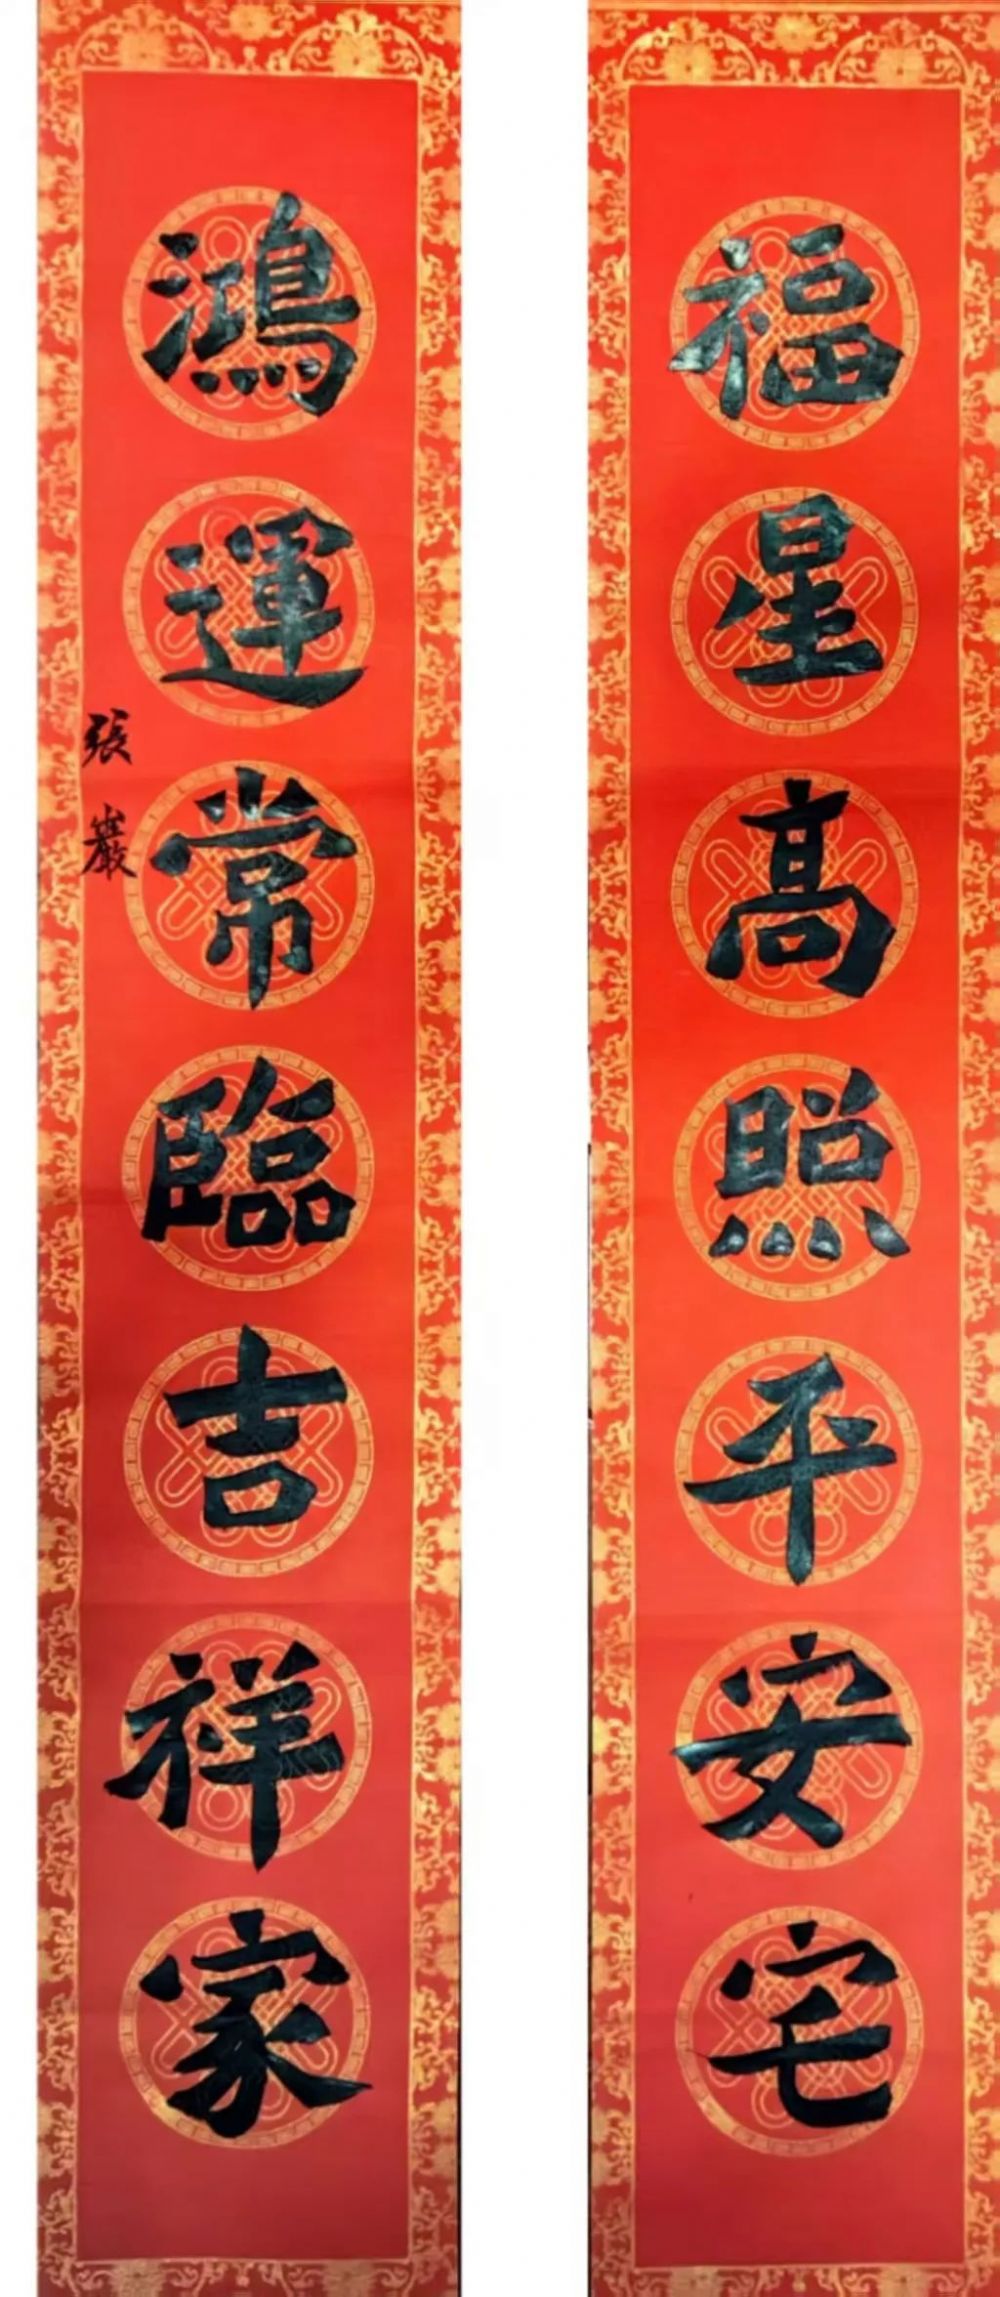 福星高照平安宅
鴻運常臨吉祥家
張巖